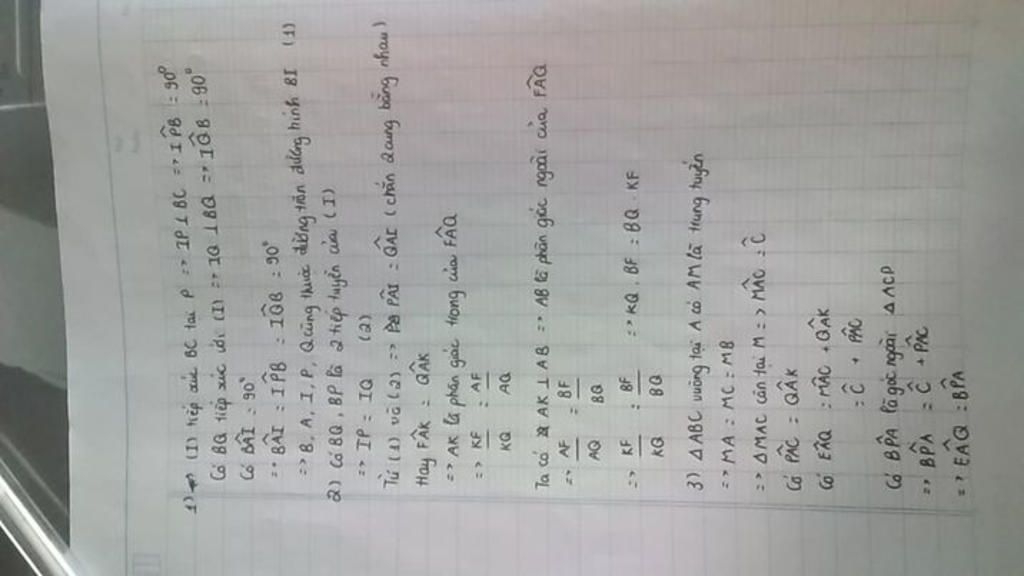 1) => (I) tiếp xúc BC tại P => IP ⊥ BC => IP̂B = 90°
Có BQ tiếp xúc với (I) => IQ ⊥ BQ => IQ̂B = 90°
Có BÂI = 90°
=> BÂI = IP̂B = IQ̂B = 90°
=> B, A, I, P, Q cùng thuộc đường tròn đường kính BI (1)
2) Có BQ, BP là 2 tiếp tuyến của (I)
=> IP = IQ (2)
Từ (1) và (2) => PÂI = QÂI (chắn 2 cung bằng nhau)
Hay FÂK = QÂK
=> AK là phân giác trong của FÂQ
=> KF/KQ = AF/AQ
Ta có AK ⊥ AB => AB là phân giác ngoài của FÂQ
=> AF/AQ = BF/BQ
=> KF/KQ = BF/BQ => KQ . BF = BQ . KF
3) Δ ABC vuông tại A có AM là trung tuyến
=> MA = MC = MB
=> Δ MAC cân tại M => MÂC = Ĉ
Có PÂC = QÂK
Có EÂQ = MÂC + QÂK
= Ĉ + PÂC
Có BP̂A là góc ngoài Δ ACP
=> BP̂A = Ĉ + PÂC
=> EÂQ = BP̂A